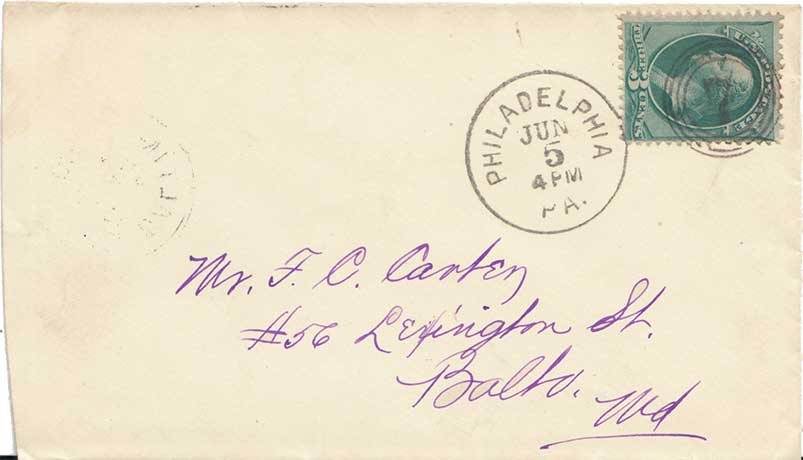 PHILADELPHIA
JUN
5
4 PM
PA.
THREE 3 CENTS
Mr. F. C. Carter
#56 Lexington St.
Balto. Md